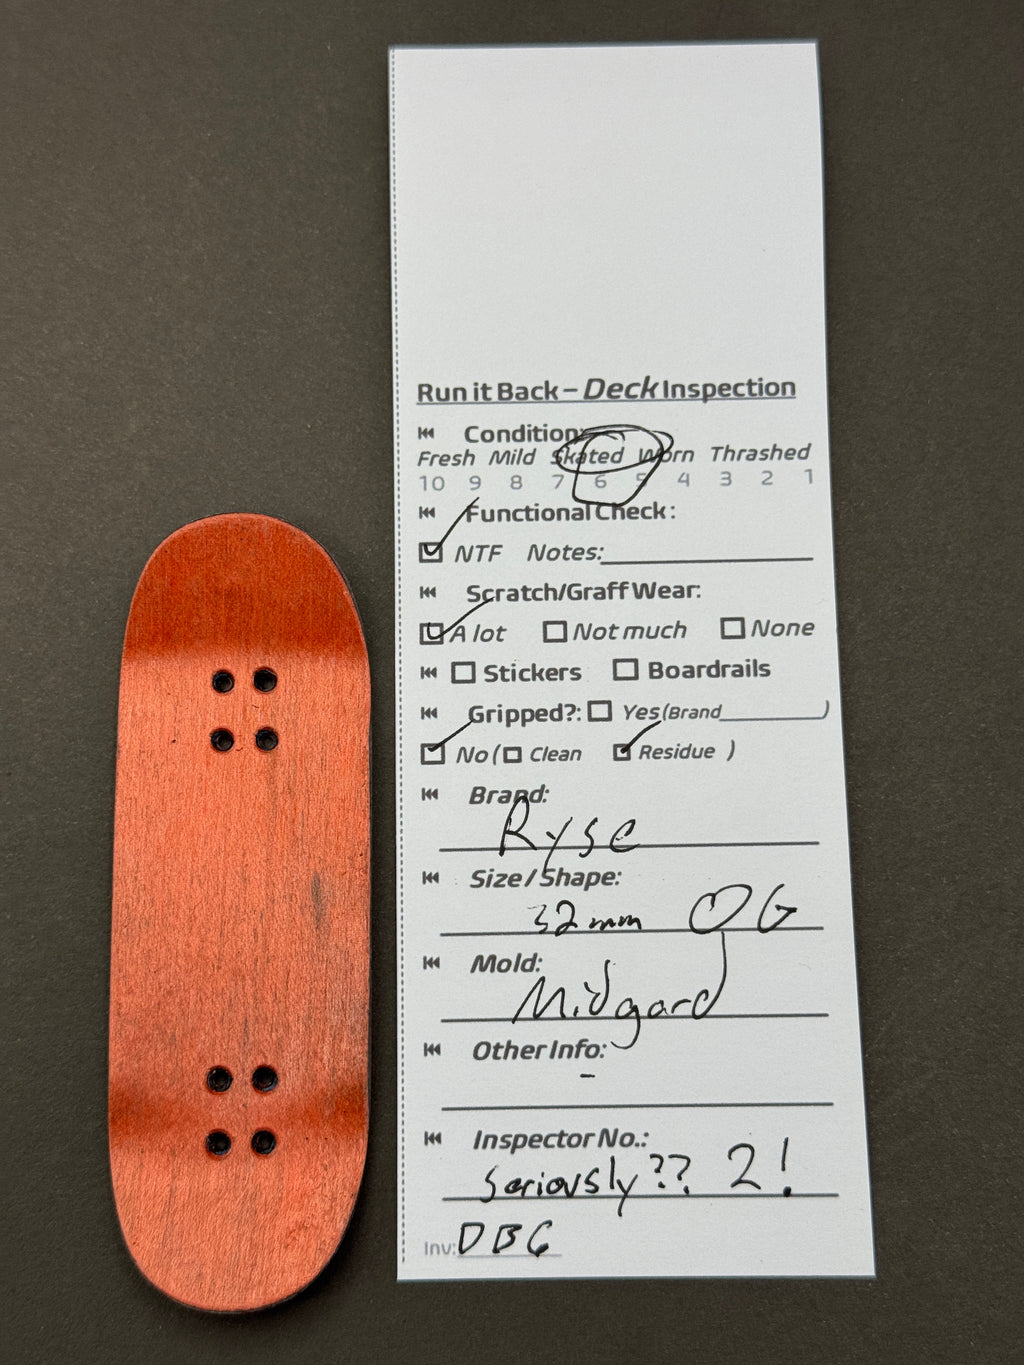 Run it Back – Deck Inspection
Condition:
Fresh Mild Skated Worn Thrashed
10 9 8 7 6 5 4 3 2 1
Functional Check:
NTF Notes:
Scratch/Graff Wear:
A lot Not much None
Stickers Boardrails
Gripped?: Yes (Brand )
No ( Clean Residue )
Brand:
Ryse
Size/Shape:
32mm OG
Mold:
Midgard
Other Info:
–
Inspector No.:
Seriously?? 2!
Inv: DBG